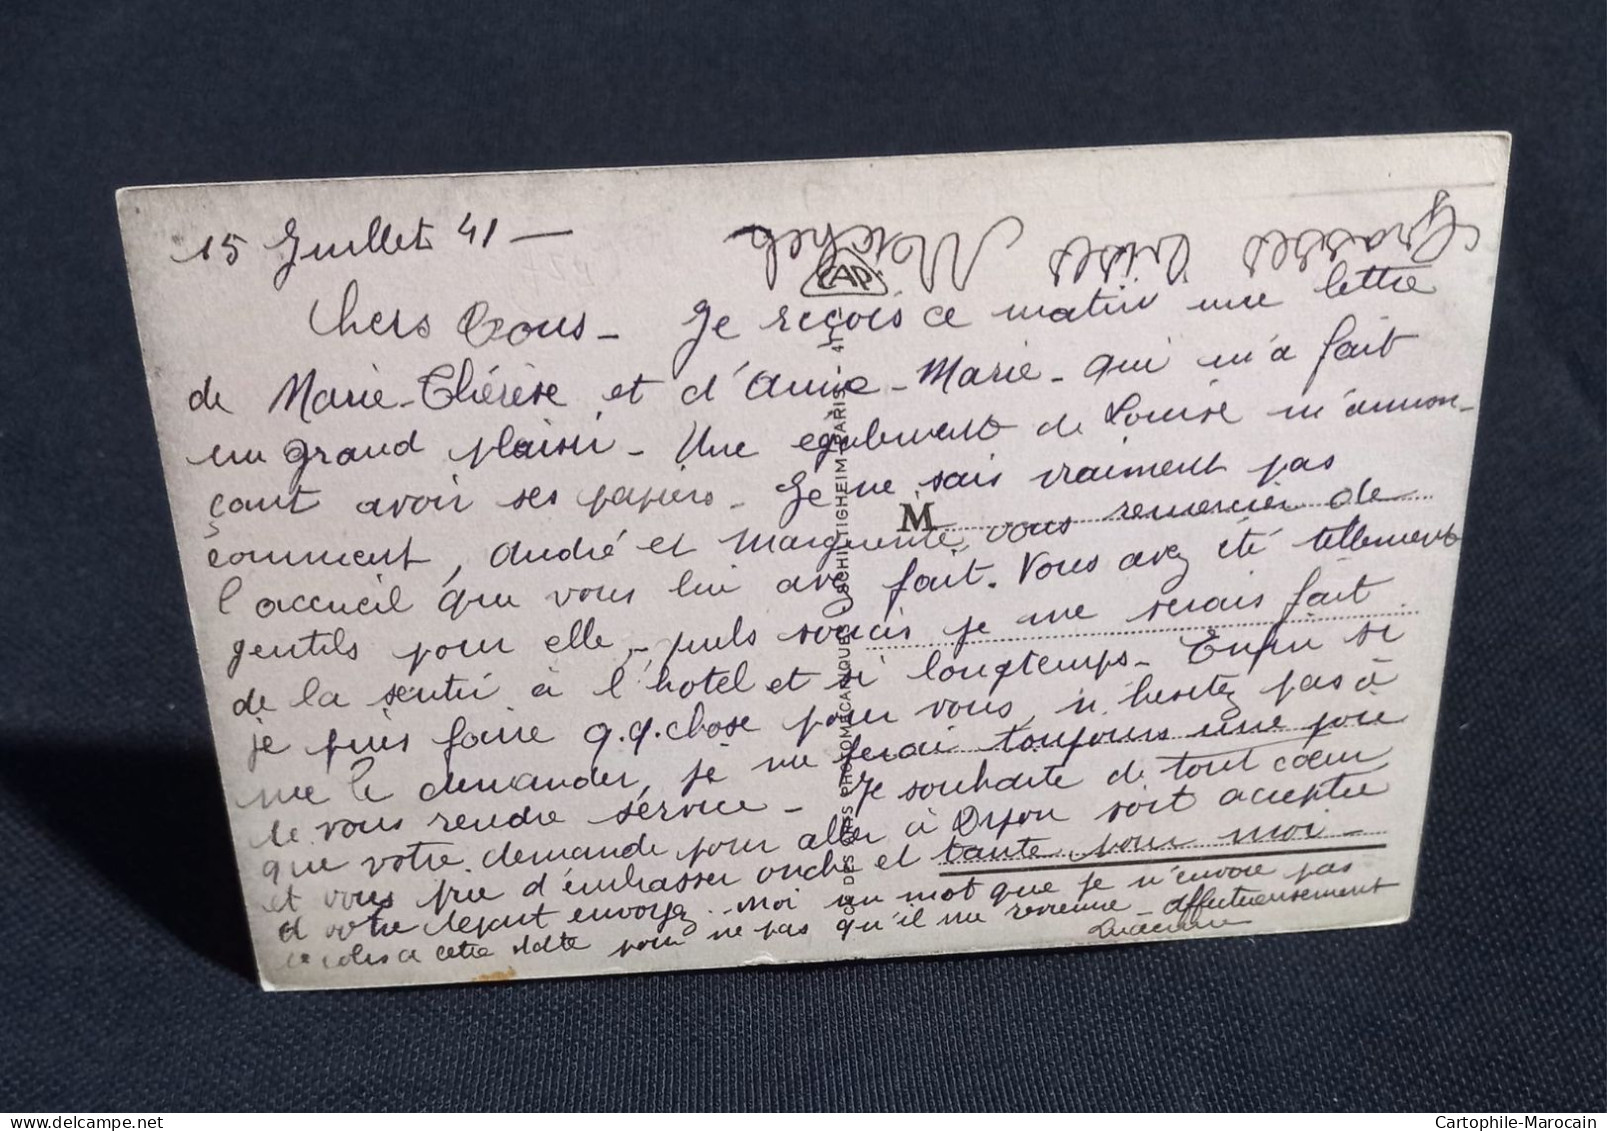 15 Juillet 41 —
Grosses bises Michel
CAP
Chers Tous - Je reçois ce matin une lettre
de Marie-Thérèse et d'Anne-Marie - qui m'a fait
un grand plaisir - Une egalement de Louise m'annon-
çant avoir ses papiers - Je ne sais vraiment pas
M
comment, André et Marguerite, vous remercier de
l'accueil que vous lui avez fait. Vous avez été tellement
gentils pour elle, - quels soucis je me serais fait
de la sentir à l'hotel et si longtemps - Enfin si
je puis faire q.q.chose pour vous n'hesitez pas à
me le demander, je me ferai toujours une joie
de vous rendre service - Je souhaite de tout cœur
que votre demande pour aller à Dijon soit acceptée
et vous prie d'embrasser oncle et tante pour moi -
à votre depart envoyez-moi un mot que je n'envoie pas
colis a cette date pour ne pas qu'il me revienne - affectueusement
DES ARTS PHOTOMÉCANIQUES SCHILTIGHEIM-PARIS 41
Cartophile-Marocain